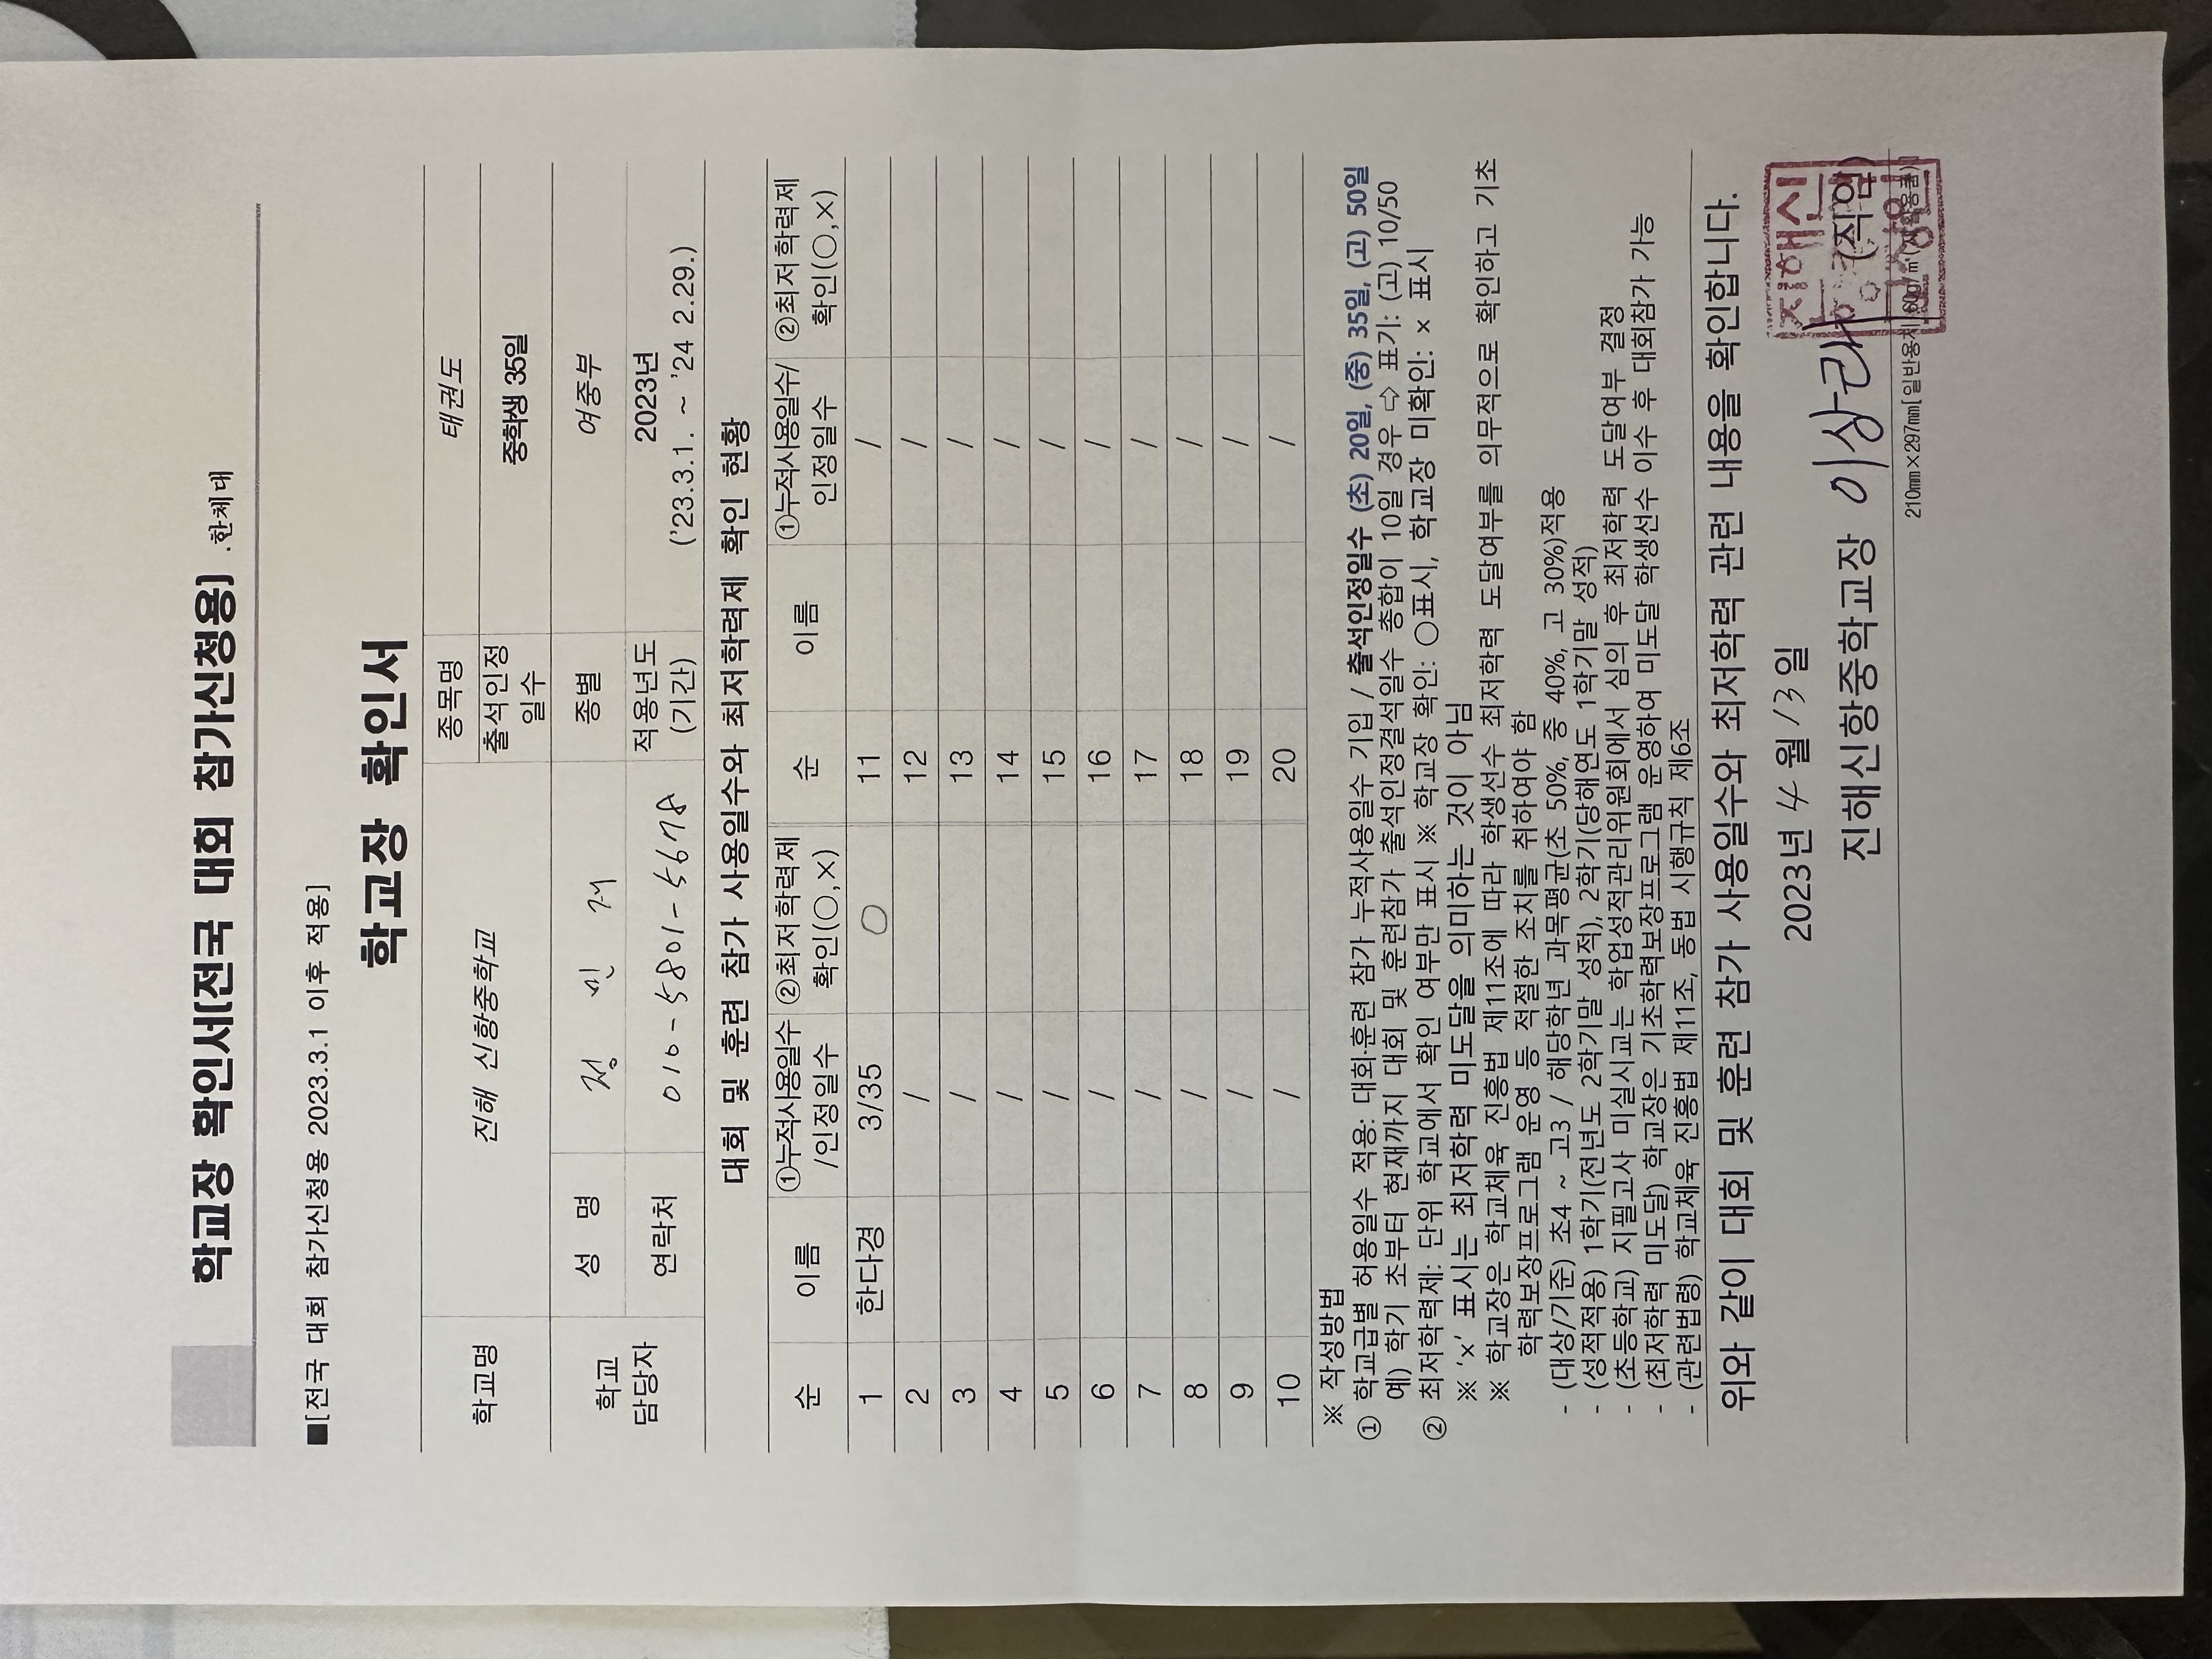 학교장 확인서(전국 대회 참가신청용) .한체대
■[전국 대회 참가신청용 2023.3.1 이후 적용]
학교장 확인서
학교명 진해 신항중학교 종목명 태권도
출석인정 일수 중학생 35일
학교 담당자 성 명 정 민 종별 여중부
연락처 010-5801-5678 적용년도 (기간) 2023년
('23.3.1. ~ '24 2.29.)
대회 및 훈련 참가 사용일수와 최저학력제 확인 현황
순 이름 ①누적사용일수 /인정일수 ②최저학력제 확인(○,×) 순 이름 ①누적사용일수/ 인정일수 ②최저학력제 확인(○,×)
1 한다경 3/35 ○ 11 /
2 / 12 /
3 / 13 /
4 / 14 /
5 / 15 /
6 / 16 /
7 / 17 /
8 / 18 /
9 / 19 /
10 / 20 /
※ 작성방법
① 학교급별 허용일수 적용: 대회·훈련 참가 누적사용일수 기입 / 출석인정일수 (초) 20일, (중) 35일, (고) 50일
예) 학기 초부터 현재까지 대회 및 훈련참가 출석인정결석일수 총합이 10일 경우 ⇨ 표기: (고) 10/50
② 최저학력제: 단위 학교에서 확인 여부만 표시 ※ 학교장 확인: ○표시, 학교장 미확인: × 표시
※ '×' 표시는 최저학력 미도달을 의미하는 것이 아님
※ 학교장은 학교체육 진흥법 제11조에 따라 학생선수 최저학력 도달여부를 의무적으로 확인하고 기초
학력보장프로그램 운영 등 적절한 조치를 취하여야 함
- (대상/기준) 초4 ~ 고3 / 해당학년 과목평균(초 50%, 중 40%, 고 30%)적용
- (성적적용) 1학기(전년도 2학기말 성적), 2학기(당해연도 1학기말 성적)
- (초등학교) 지필고사 미실시교는 학업성적관리위원회에서 심의 후 최저학력 도달여부 결정
- (최저학력 미도달) 학교장은 기초학력보장프로그램 운영하여 미도달 학생선수 이수 후 대회참가 가능
- (관련법령) 학교체육 진흥법 제11조, 동법 시행규칙 제6조
위와 같이 대회 및 훈련 참가 사용일수와 최저학력 관련 내용을 확인합니다.
2023년 4 월 13 일
진해신항중학교장 이상라 (직인)
210㎜×297㎜[일반용지 60g/㎡(재활용품)]